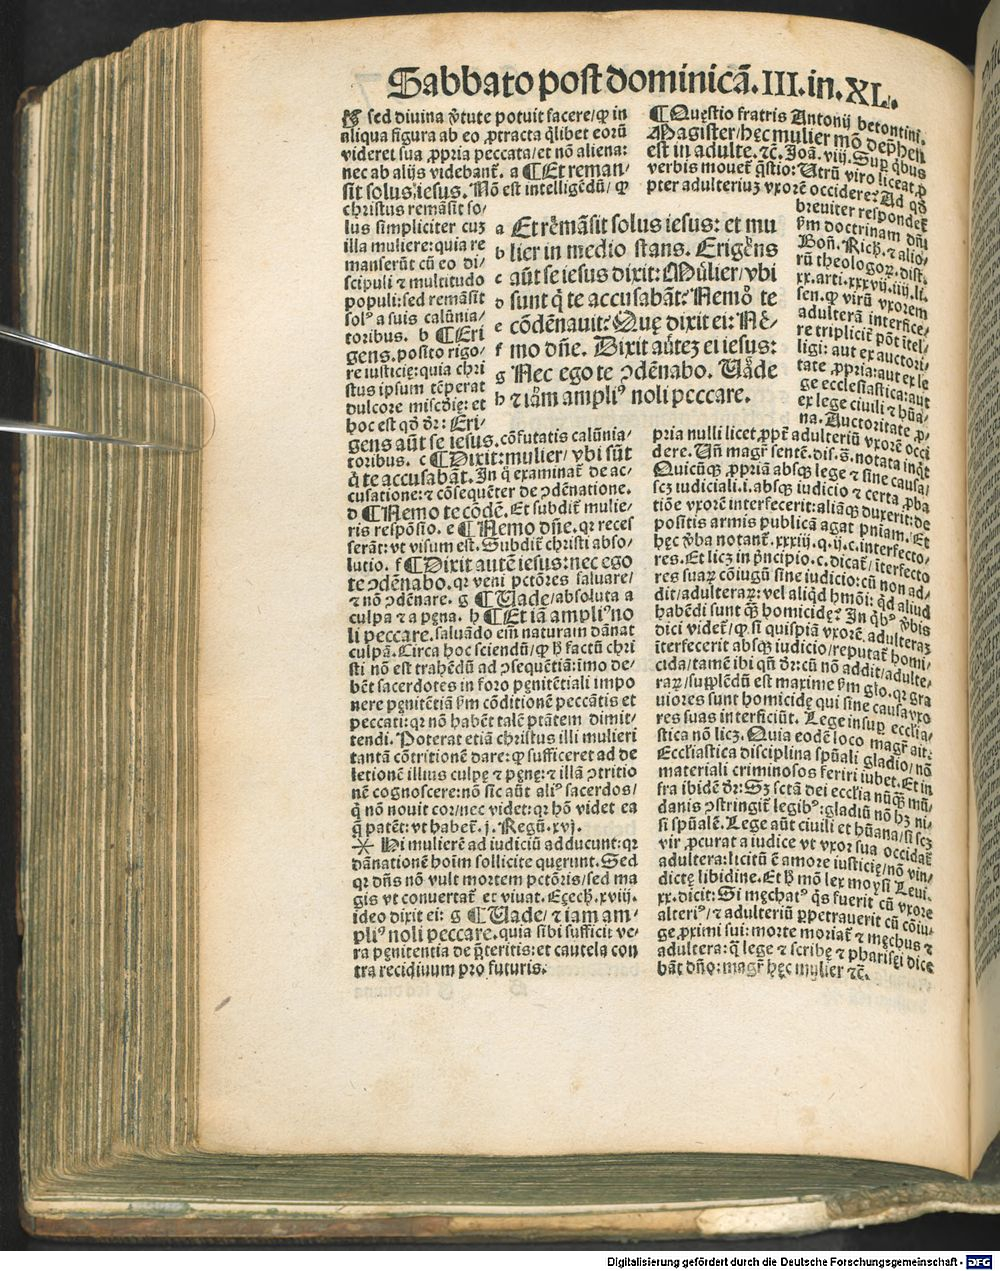 Sabbato post dominicã. III. in. XL.
sed divina ṽtute potuit facere/ꝙ in
aliqua figura ab eo ꝓtracta q̃libet eorũ
videret sua ꝓpria peccata/et nõ aliena:
nec ab alijs videbant̃. a ¶Et reman-
sit solus iesus. Nõ est intelligẽdũ/ ꝙ
christus remãsit so/
lus simpliciter cuꝫ
illa muliere: quia re
manserũt cũ eo di/
scipuli ⁊ multitudo
populi: sed remãsit
solꝰ a suis calũnia/
toribus. b ¶Eri
gens. posito rigo/
re iusticię: quia chri
stus ipsum tẽperat
dulcore miscďię: et
hoc est qď dr̃: Eri/
gens aũt se iesus. cõfutatis calũnia/
toribus. c ¶Dixit: mulier/ vbi sũt
q̃ te accusabãt. In q̃ examinat̃ de ac/
cusatione: ⁊ cõsequẽter de ꝯdẽnatione.
d ¶Nemo te cõdẽ. Et subdit̃ mulie/
ris respõsio. e ¶Nemo dñe. qr reces
serãt: vt visum est. Subdit̃ christi abso/
lutio. f ¶Dixit autẽ iesus: nec ego
te ꝯdẽnabo. qr veni pctõres saluare/
⁊ nõ ꝯdẽnare. g ¶Uade/absoluta a
culpa ⁊ a pęna. h ¶Et iã ampliꝰ no
li peccare. saluãdo eñi naturam dãnat
culpã. Circa hoc sciendũ/ꝙ h̃ factũ chri
sti nõ est trahẽdũ ad ꝯsequẽtiã: imo de/
bẽt sacerdotes in foro pęnitẽtiali impo
nere pęnitẽtiã ẜm cõditionẽ peccãtis et
peccati: qr nõ habẽt talẽ ptãtem dimit/
tendi. Poterat etiã christus illi mulieri
tantã cõtritionẽ dare: ꝙ sufficeret ad de
letionẽ illius culpę ⁊ pęnę: ⁊ illã ꝯtritio
nẽ cognoscere: nõ sic aũt aliꝰ sacerdos/
q̃ nõ novit cor/nec videt: qr hõ videt ea
q̃ patẽt: vt habet̃. j. Regũ. xvj.
Hi mulierẽ ad iudiciũ adducunt: qr
dãnationẽ hoĩm sollicite querunt. Sed
qr dñs nõ vult mortem pctõris/sed ma
gis vt convertat̃ et vivat. Eęech. xviij.
ideo dixit ei: g ¶Uade/ ⁊ iam am/
pliꝰ noli peccare. quia sibi sufficit ve/
ra penitentia de p̃teritis: et cautela con
tra recidiuum pro futuris.
a Et remãsit solus iesus: et mu
b lier in medio stans. Erigẽns
c aũt se iesus dixit: Mulier/vbi
d sunt q̃ te accusabãt? Nemo te
e cõdẽnauit? Quę dixit ei: Nẽ/
f mo dñe. Dixit aũteȝ ei iesus:
g Nec ego te ꝯdẽnabo. Uade
h ⁊ iãm ampliꝰ noli peccare.
¶Questio fratris Antonij betontini.
Magister/hęc mulier mõ dep̃hen
est in adulte. ⁊č. Joã. viij. Suꝑ q̃bus
verbis mouet̃ q̃stio: Utrũ viro liceat ꝓ
pter adulteriuȝ vxorẽ occidere? Ad qď
breuiter respondet̃
ẜm doctrinam dñi
Boñ. Rich. ⁊ alio/
rũ theologoꝝ. dist.
xx. arti. xxxvij. iiij. li.
sen. ꝙ virũ vxorem
adulterã interfice/
re triplicit̃ põt ĩtel/
ligi: aut ex auctori/
tate ꝓpria: aut ex le
ge ecclesiastica: aut
ex lege ciuili ⁊ hũa/
na. Auctoritate ꝓ/
pria nulli licet ꝓpt̃ adulteriũ vxorẽ occi
dere. Uñ magr̃ sentẽ. dis. ę. notata inq̃t
Quicũqȝ ꝓpriã absqȝ lege ⁊ sine causa/
scȝ iudiciali. i. absqȝ iudicio ⁊ certa ꝓba
tiõe vxorẽ interfecerit: aliãqȝ duxerit: de
positis armis publicã agat pniam. Et
hęc ṽba notant̃. xxxiij. q. ij. c. interfecto/
res. Et licȝ in p̃ncipio. c. dicat̃/ ĩterfecto
res suaꝝ cõiugũ sine iudicio: cũ non ad/
dit/adulteraꝝ: vel aliqď hmõi: q̃d aliud
habẽdi sunt qȝ homicidę? In q̃bꝰ ṽbis
dici videt̃/ꝙ si quispiã vxorẽ adulteraȝ
ĩterfecerit absqȝ iudicio/reputat̃ homi/
cida/tamẽ ibi qñ dr̃: cũ nõ addit/adulte/
raꝝ/supplẽdũ est maxime ẜm glo. qr gra
uiores sunt homicidę qui sine causa vxo
res suas interficiũt. Lege insuꝑ ecclĩa/
stica nõ licȝ. Quia eodẽ loco magr̃ ait:
Ecclĩastica disciplina spũali gladio/nõ
materiali criminosos feriri iubet. Et in
fra ibidẽ dr̃: Sȝ sctã dei ecclĩa nũqȝ mũ/
danis ꝯstringit̃ legibꝰ: gladiũ nõ hȝ ni/
si spũalẽ. Lege aũt ciuili et hũana/si scȝ
vir ꝓcurat a iudice vt vxor sua occidat̃
adultera: licitũ ẽ amore iusticię/nõ vin/
dictę libidine. Et h̃ mõ lex moysi Leui.
xx. dicit: Si męchatꝰ q̃s fuerit cũ vxore
alteriꝰ/ ⁊ adulteriũ ꝑpetrauerit cũ cõiu/
ge ꝓximi sui: morte moriat̃ ⁊ męchus ⁊
adultera: q̃ lege ⁊ scribę ⁊ pharisęi dice
bãt dño: magr̃ hęc mulier ⁊č.
Digitalisierung gefördert durch die Deutsche Forschungsgemeinschaft - DFG